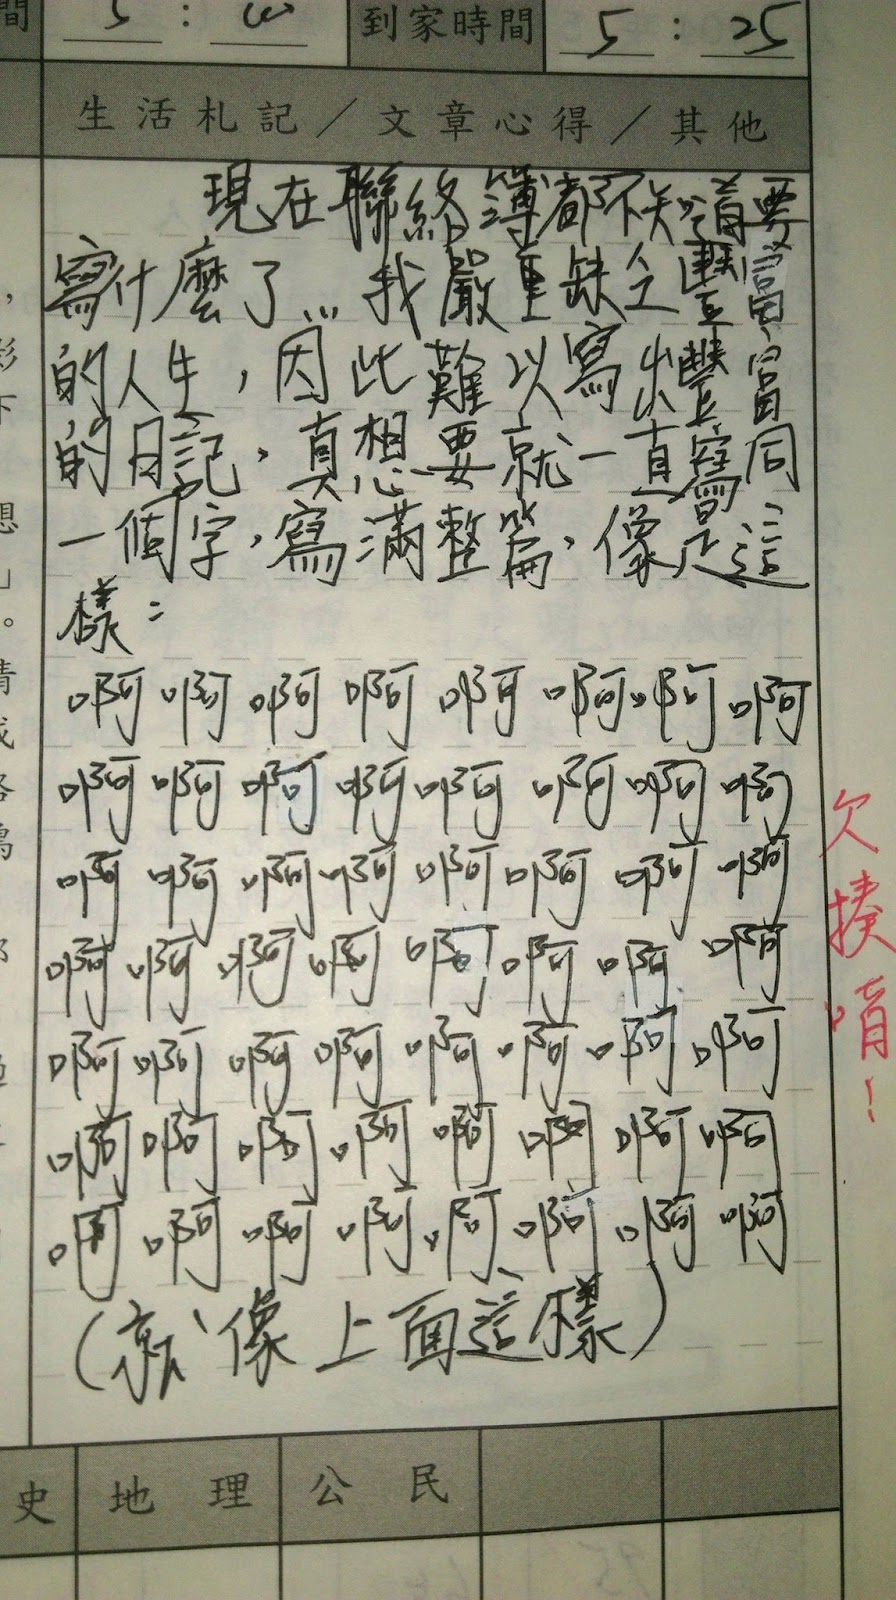 間
5 : 00
到家時間
5 : 25
生活札記／文章心得／其他
現在聯絡簿都不知道要
寫什麼了…我嚴重缺乏豐富
的人生，因此難以寫出豐富
的日記，真想要就一直寫同
一個字，寫滿整篇，像是這
樣：
啊啊啊啊啊啊啊啊
啊啊啊啊啊啊啊啊
啊啊啊啊啊啊啊啊
啊啊啊啊啊啊啊啊
啊啊啊啊啊啊啊啊
啊啊啊啊啊啊啊啊
啊啊啊啊啊啊啊啊
（就像上面這樣）
欠揍唷！
史 地理 公民